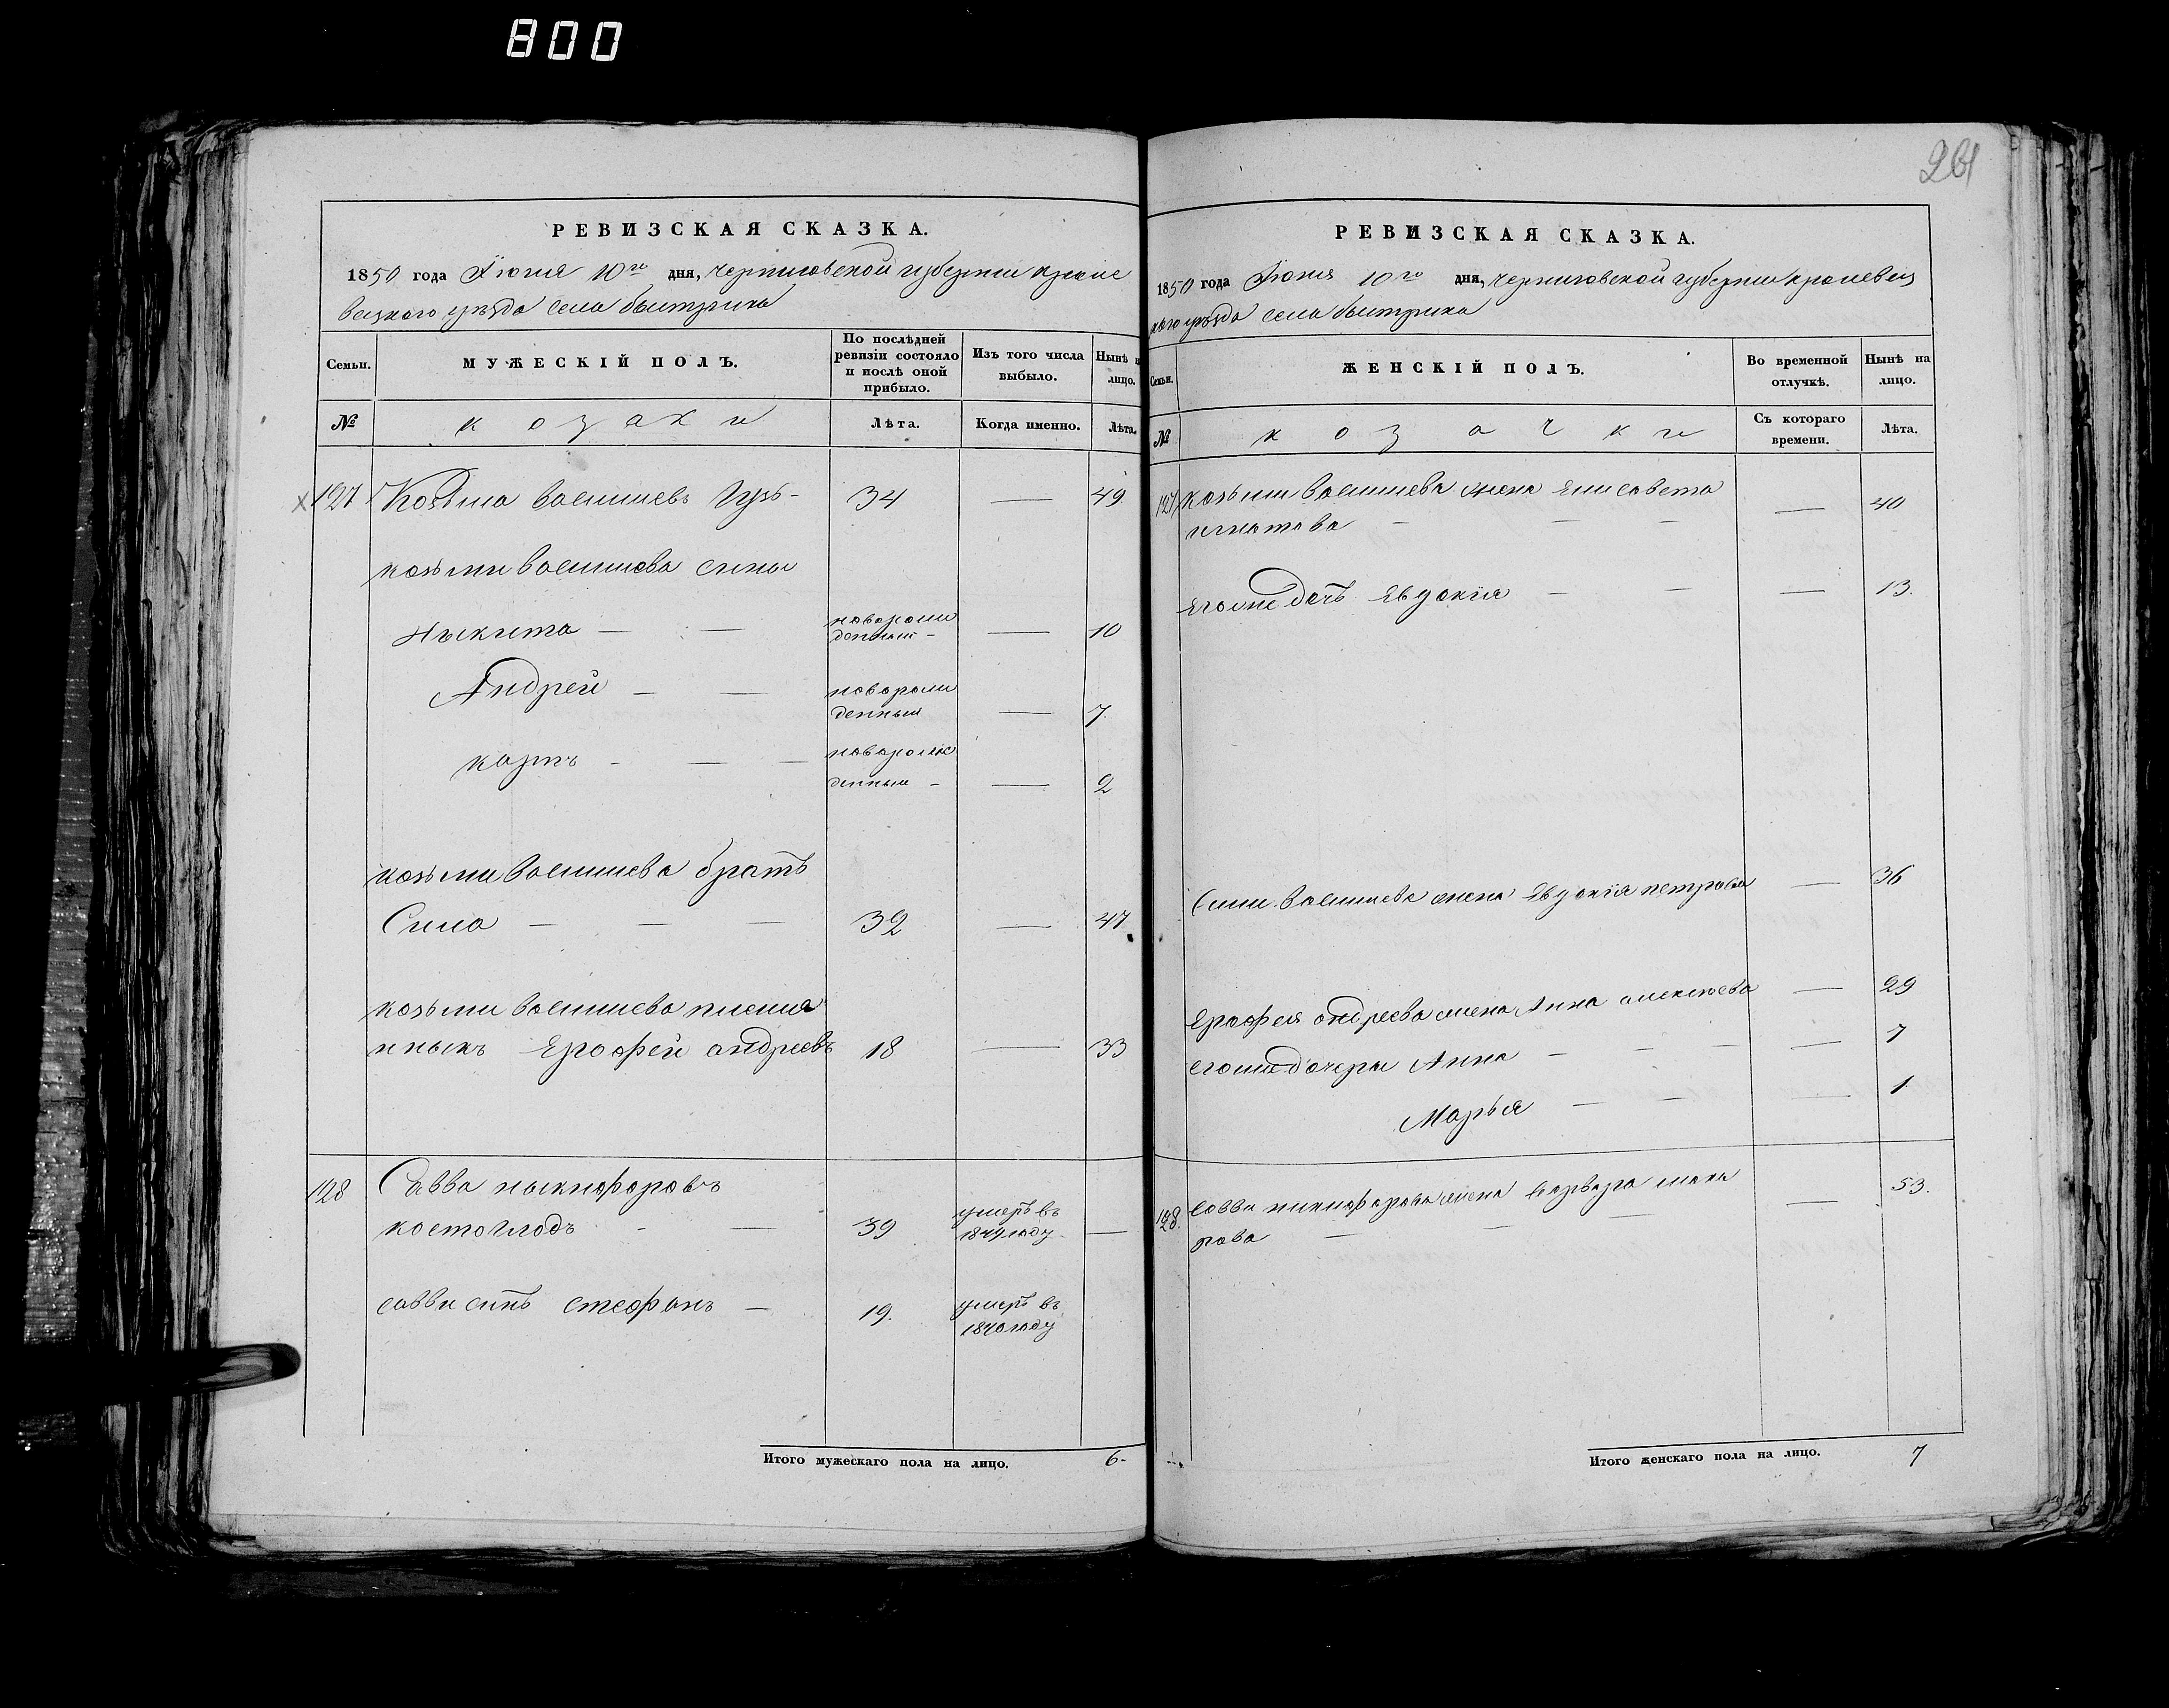 800
261
РЕВИЗСКАЯ СКАЗКА.
1850 года Іюня 10го дня, черниговской губернии кроле
вецкого уѣзда села быстрика
Семьи.
МУЖЕСКІЙ ПОЛЪ.
По послѣдней
ревизіи состояло
и послѣ оной
прибыло.
Изъ того числа
выбыло.
Нынѣ н
лицо.
№
козаки
Лѣта.
Когда именно.
Лѣта.
127 Козьма васильевъ Гузь- 34 — 49.
козьми васильева сины
Ныкита — — новорож
денный — — 10
Андрей — — новорож
денный — 7.
карпъ — — — новорож
денный — — 2
козьми васильева братъ
Сила — — — 32 — 47
козьми васильева племя
нныкъ Ерофей андреевъ 18 — 33
128 Савва ныкифоровъ
костоглодъ — — 39 умеръ въ
1849 году —
савви синъ стефанъ — 19. умеръ въ
1840 году
Итого мужескаго пола на лицо. 6-
РЕВИЗСКАЯ СКАЗКА.
1850 года Іюня 10го дня, черниговской губернии кролевец
кого уѣзда села быстрика
Семьи.
ЖЕНСКІЙ ПОЛЪ.
Во временной
отлучкѣ.
Нынѣ на
лицо.
№
козачки
Съ котораго
времени.
Лѣта.
127 козьми васильева жена Елисавета
игнатова — — — — 40
Егоже дочь Евдокія — — — 13.
Сили васильева жена Евдокія петрова — 36
Ерофея андреева жена Анна алексѣева — 29
егоже дочери Анна — — — — 7
Марья — — — 1
128. савви никифорова жена варвара мака
рова — — — — 53.
Итого женскаго пола на лицо. 7